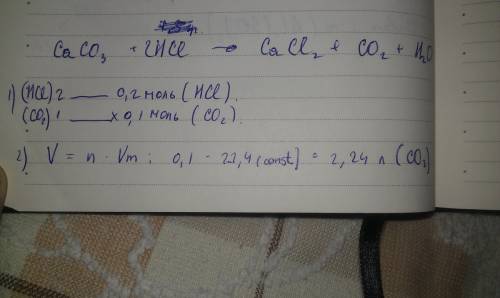 CaCO₃ + 2HCl → CaCl₂ + CO₂ + H₂O
1) (HCl) 2 — 0,2 моль (HCl).
(CO₂) 1 — x 0,1 моль (CO₂).
2) V = n · Vm ; 0,1 · 22,4 (const) = 2,24 л (CO₂)